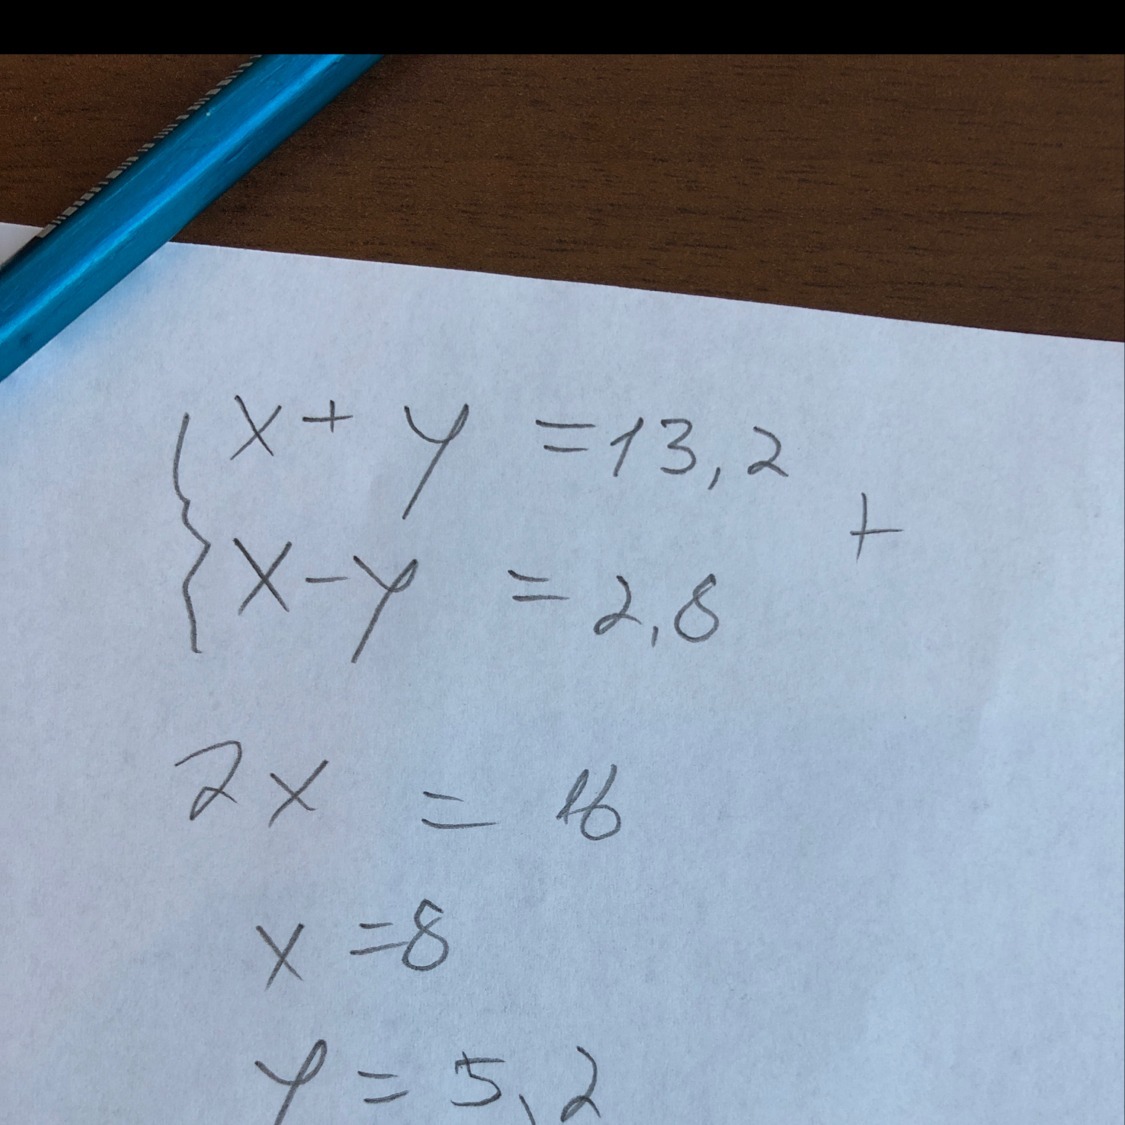 x + y = 13,2
+
x - y = 2,8
2x = 16
x = 8
y = 5,2